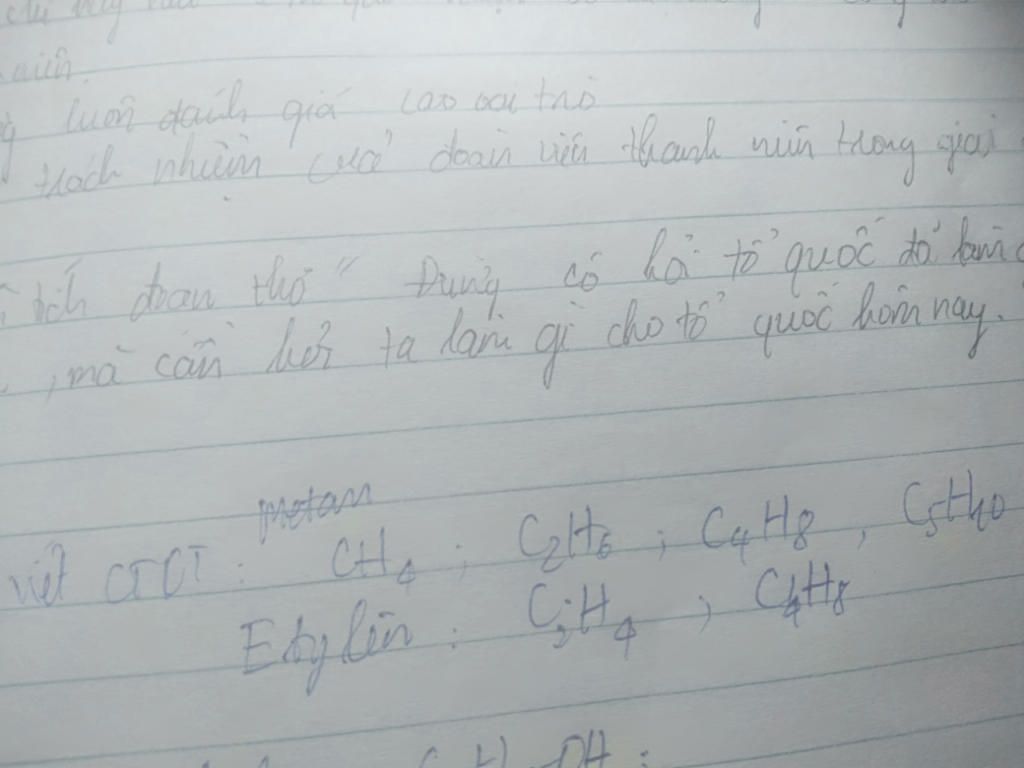 luôn đánh giá cao vai trò
trách nhiệm của đoàn viên thanh niên trong giai
tích đoạn thơ " Đừng có hỏi tổ quốc đã làm
, mà cần hỏi ta làm gì cho tổ quốc hôm nay.
metan
viết CTCT : CH4 ; C2H6 ; C4H8 , C5H10
Etylen : C2H4 ; C4H8